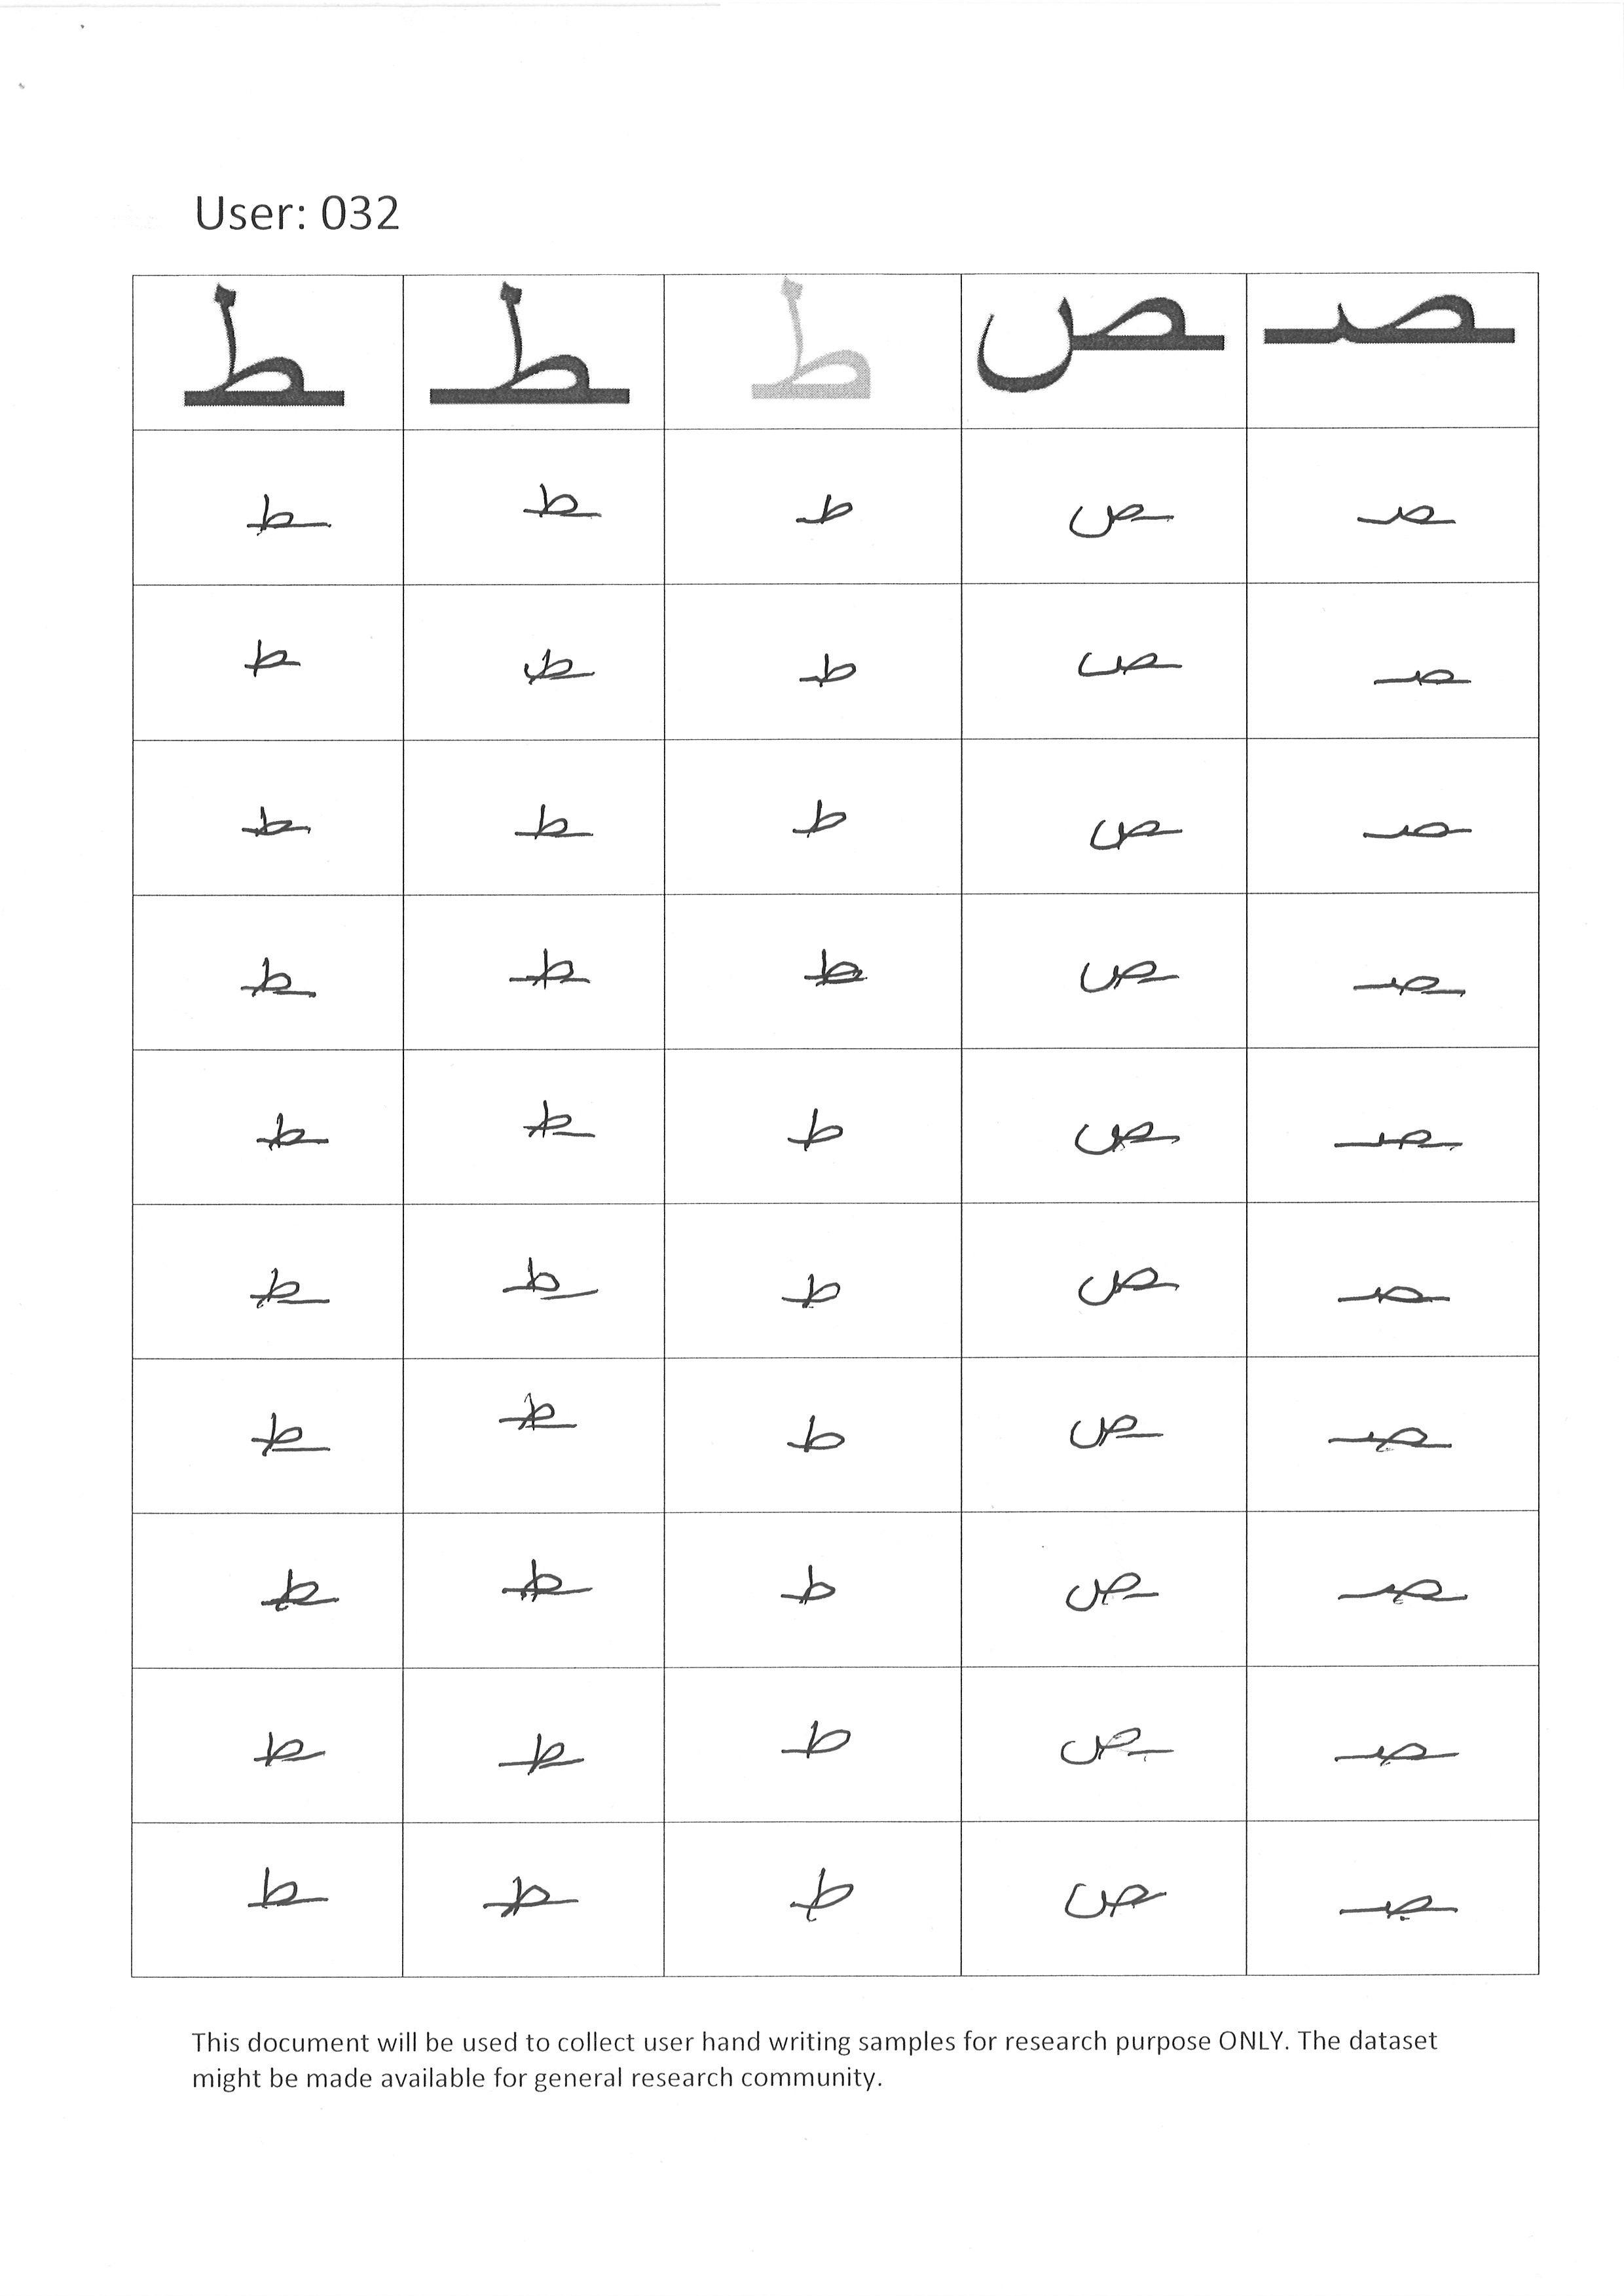 User: 032
ـصـ ـص ط ـطـ ـط
ـصـ ـص ط ـطـ ـط
ـصـ ـص ط ـطـ ـط
ـصـ ـص ط ـطـ ـط
ـصـ ـص ط ـطـ ـط
ـصـ ـص ط ـطـ ـط
ـصـ ـص ط ـطـ ـط
ـصـ ـص ط ـطـ ـط
ـصـ ـص ط ـطـ ـط
ـصـ ـص ط ـطـ ـط
ـصـ ـص ط ـطـ ـط
This document will be used to collect user hand writing samples for research purpose ONLY. The dataset
might be made available for general research community.